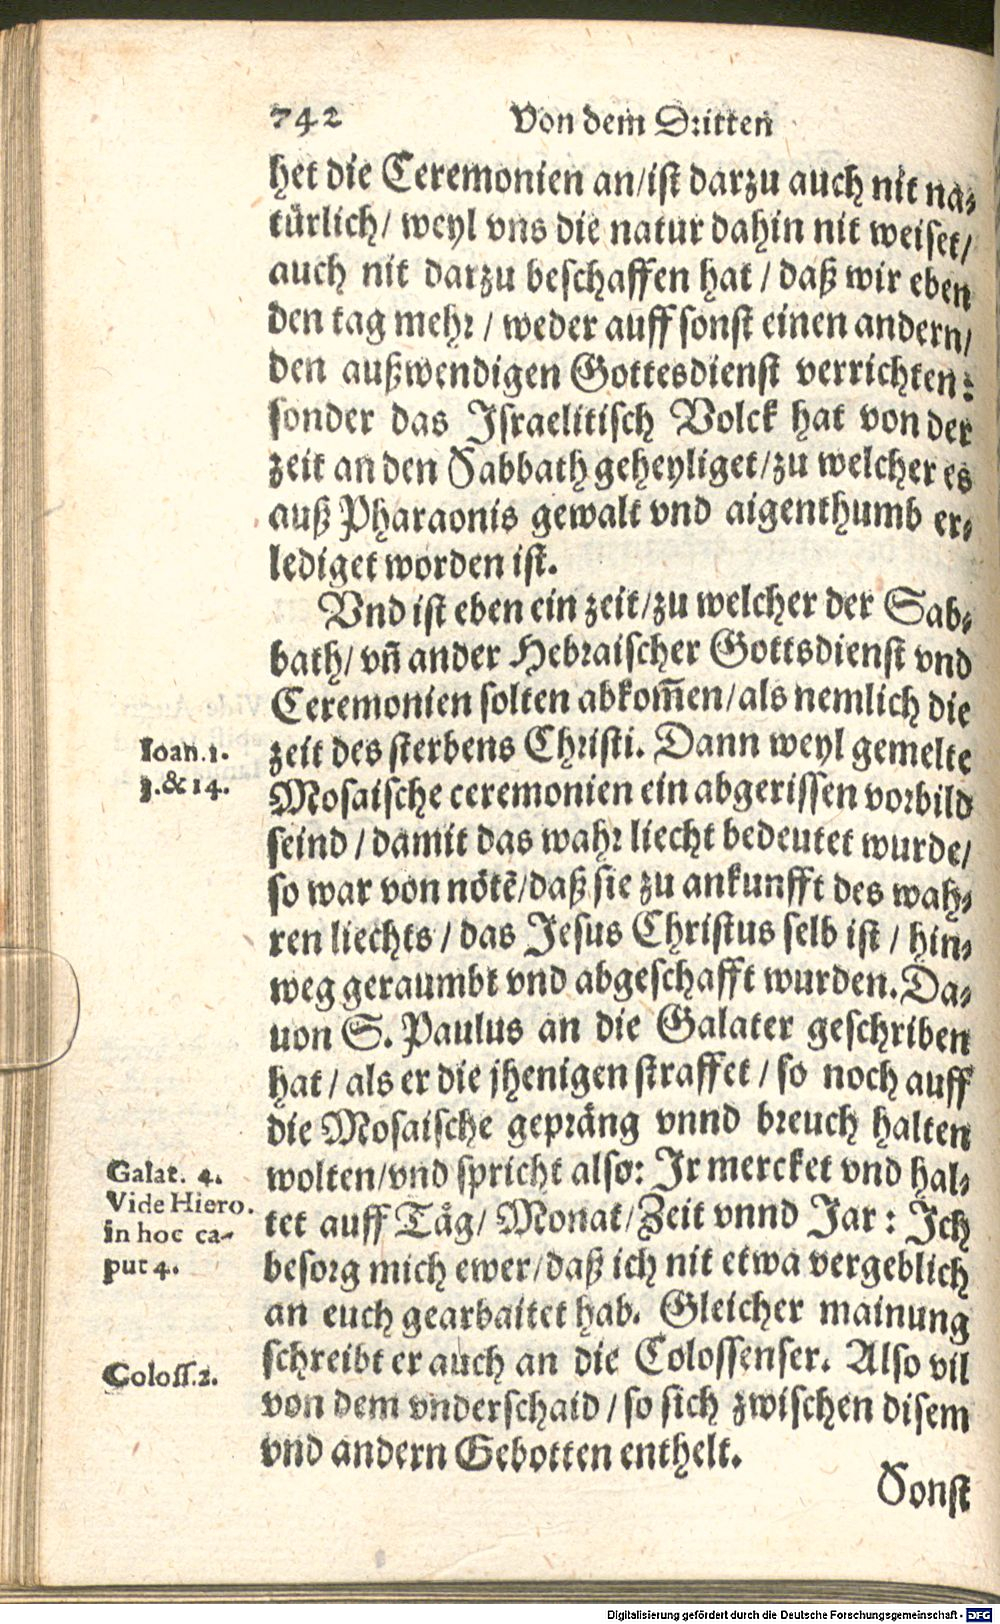 742 Von dem Dritten
het die Ceremonien an/ist darzu auch nit na-
türlich/ weyl vns die natur dahin nit weiset/
auch nit darzu beschaffen hat / daß wir eben
den tag mehr / weder auff sonst einen andern/
den außwendigen Gottesdienst verrichten:
sonder das Israelitisch Volck hat von der
zeit an den Sabbath geheyliget/zu welcher es
auß Pharaonis gewalt vnd aigenthumb er-
lediget worden ist.
Vnd ist eben ein zeit/zu welcher der Sab-
bath/ vñ ander Hebraischer Gottsdienst vnd
Ceremonien solten abkom̃en/als nemlich die
Ioan.1.
zeit des sterbens Christi. Dann weyl gemelte
3.&14.
Mosaische ceremonien ein abgerissen vorbild
seind / damit das wahr liecht bedeutet wurde/
so war von nötẽ/daß sie zu ankunfft des wah-
ren liechts / das Jesus Christus selb ist / hin-
weg geraumbt vnd abgeschafft wurden. Da-
uon S. Paulus an die Galater geschriben
hat / als er die jhenigen straffet / so noch auff
die Mosaische gepräng vnnd breuch halten
Galat. 4.
wolten/vnd spricht also: Ir mercket vnd hal-
Vide Hiero.
tet auff Täg/ Monat/Zeit vnnd Jar: Ich
in hoc ca-
besorg mich ewer/daß ich nit etwa vergeblich
put 4.
an euch gearbaitet hab. Gleicher mainung
schreibt er auch an die Colossenser. Also vil
Coloss.2.
von dem vnderschaid / so sich zwischen disem
vnd andern Gebotten enthelt.
Sonst
Digitalisierung gefördert durch die Deutsche Forschungsgemeinschaft - DFG